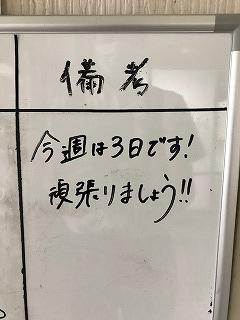 備考
今週は3日です!
頑張りましょう!!